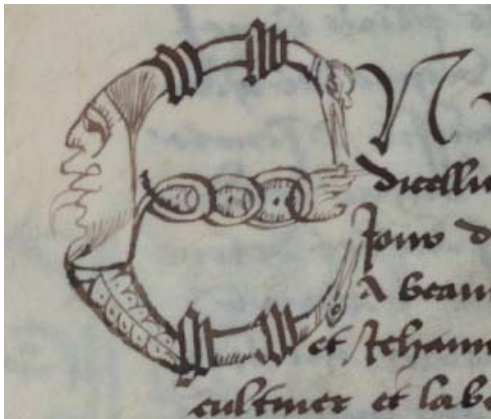 EN
dicellu
Jour d
A beau
et Jehann
cultiuer et lab